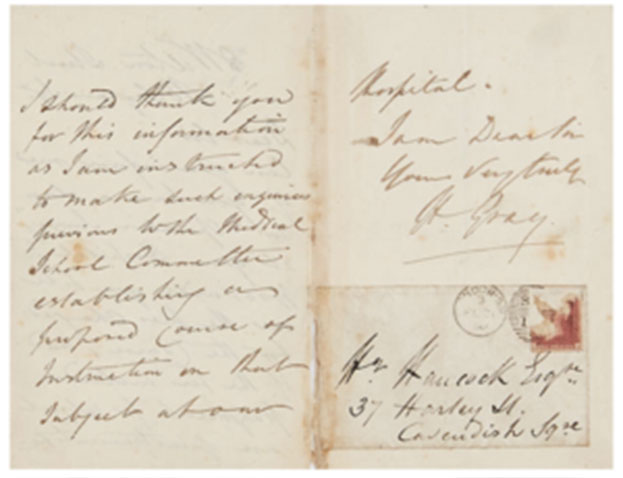 I should thank you
for this information
as I am instructed
to make such enquiries
previous to the Medical
School Committee
establishing a
proposed Course of
Instruction in that
Subject at our
Hospital.
I am Dear Sir
Yours Very truly
H. Gray.
Hy. Hancock Esqre
37 Harley St.
Cavendish Sqre